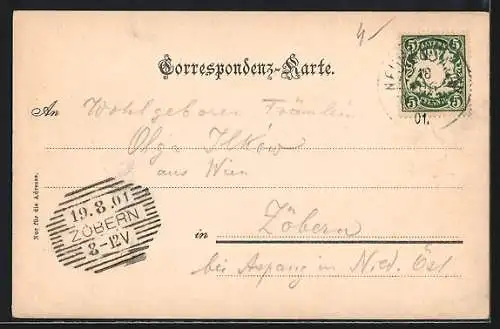 4/-
BAYERN
5 5
5 5
PFENNIG
NEU
18
01.
Correspondenz-Karte.
An Wohlgeboren Fräulein
Olga Ilkow
aus Wien
in Zöbern
bei Aspang in Nied. Öst
Nur für die Adresse.
19.8.01
ZÖBERN
8-12V